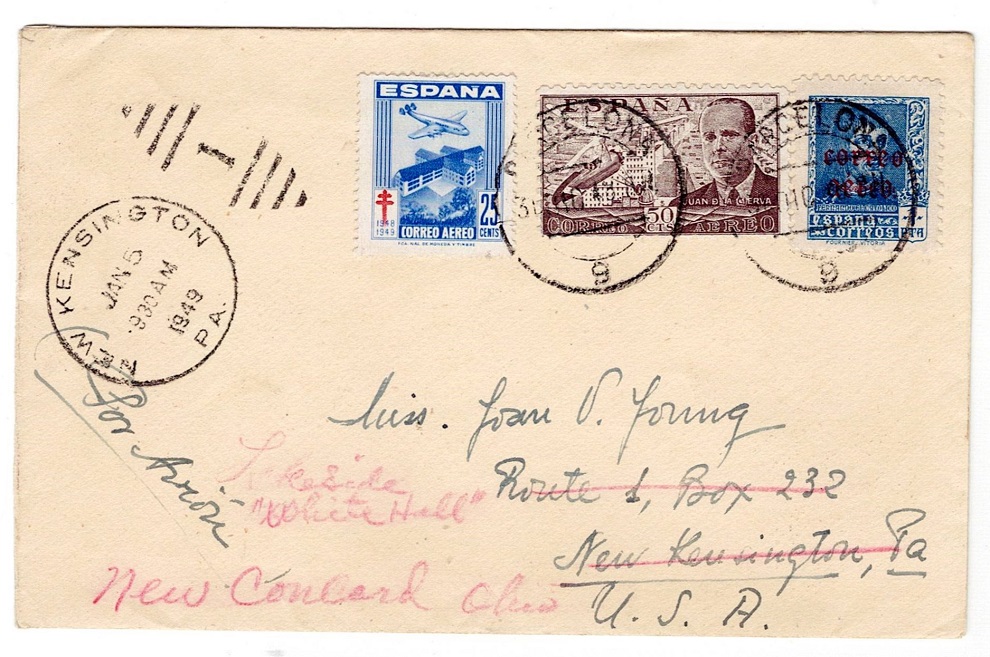 ESPAÑA
1948
1949
CORREO AEREO
25
CENTS
FCA. NAL. DE MONEDA Y TIMBRE
ESPAÑA
JUAN DE LA CIERVA
CORREO 50 CTS AEREO
BARCELONA
9
BARCELONA
9
correo
aéreo
España
correos PTA
FOURNIER. VITORIA
NEW KENSINGTON PA.
JAN 5
930 AM
1949
Por Avión
Miss. Joan V. Young
Route 1, Box 232
New Kensington, Pa
U. S. A.
Lakeside
"White Hall"
New Concord Ohio